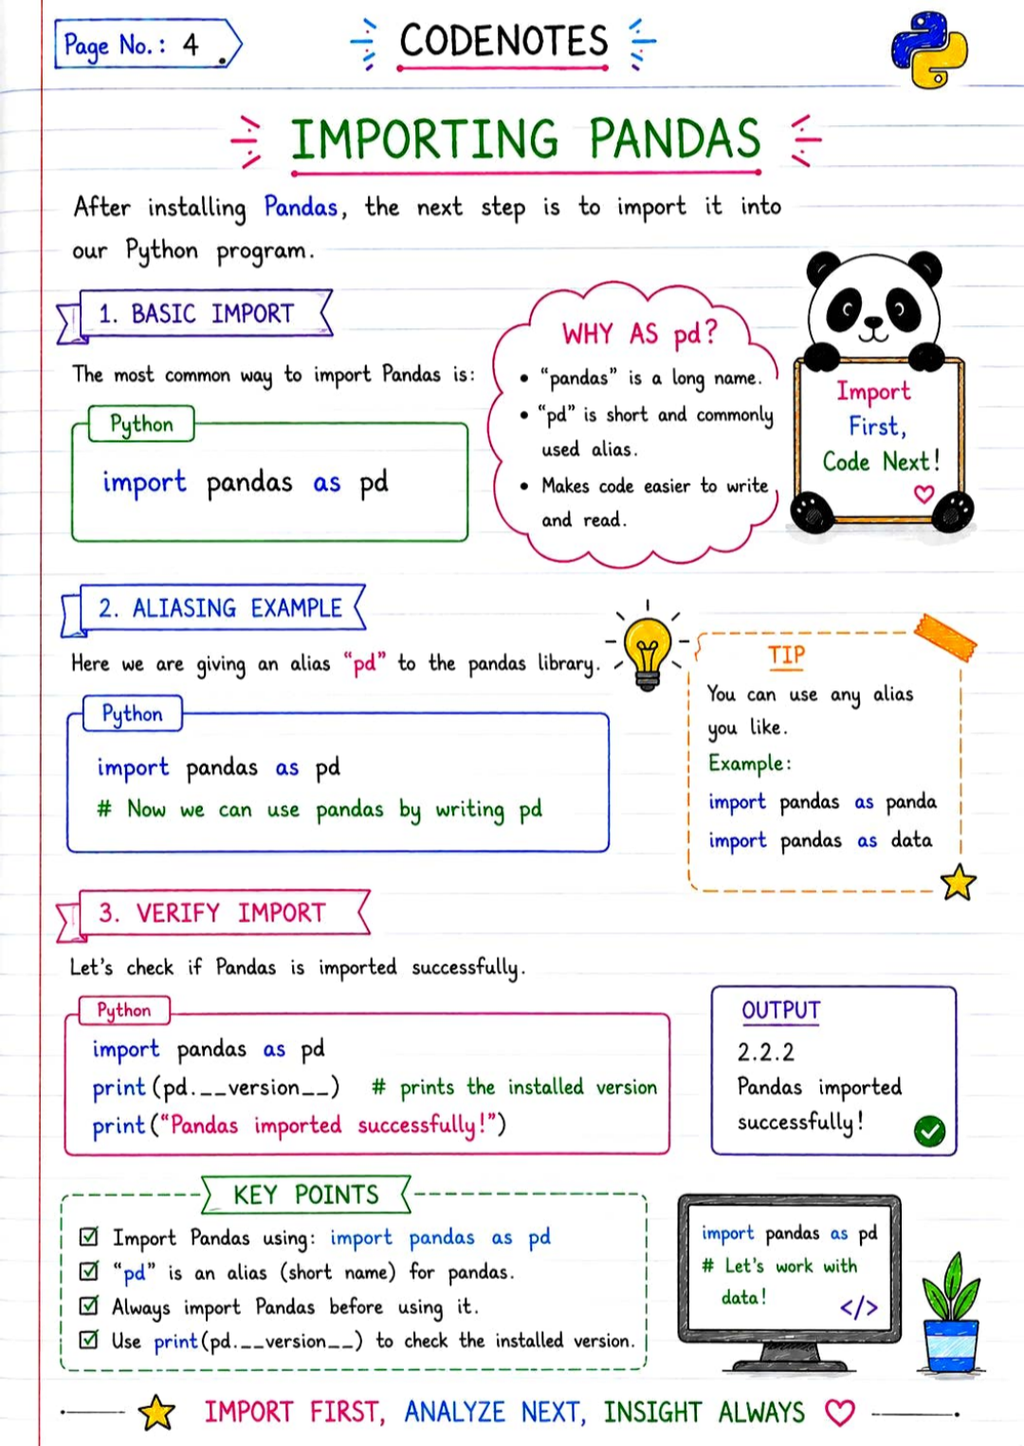 Page No.: 4
CODENOTES
IMPORTING PANDAS
After installing Pandas, the next step is to import it into
our Python program.
1. BASIC IMPORT
The most common way to import Pandas is:
Python
import pandas as pd
WHY AS pd?
• “pandas” is a long name.
• “pd” is short and commonly
used alias.
• Makes code easier to write
and read.
Import
First,
Code Next!
2. ALIASING EXAMPLE
Here we are giving an alias “pd” to the pandas library.
Python
import pandas as pd
# Now we can use pandas by writing pd
TIP
You can use any alias
you like.
Example:
import pandas as panda
import pandas as data
3. VERIFY IMPORT
Let's check if Pandas is imported successfully.
Python
import pandas as pd
print(pd.__version__) # prints the installed version
print(“Pandas imported successfully!”)
OUTPUT
2.2.2
Pandas imported
successfully!
KEY POINTS
Import Pandas using: import pandas as pd
“pd” is an alias (short name) for pandas.
Always import Pandas before using it.
Use print(pd.__version__) to check the installed version.
import pandas as pd
# Let's work with
data!
</>
IMPORT FIRST, ANALYZE NEXT, INSIGHT ALWAYS